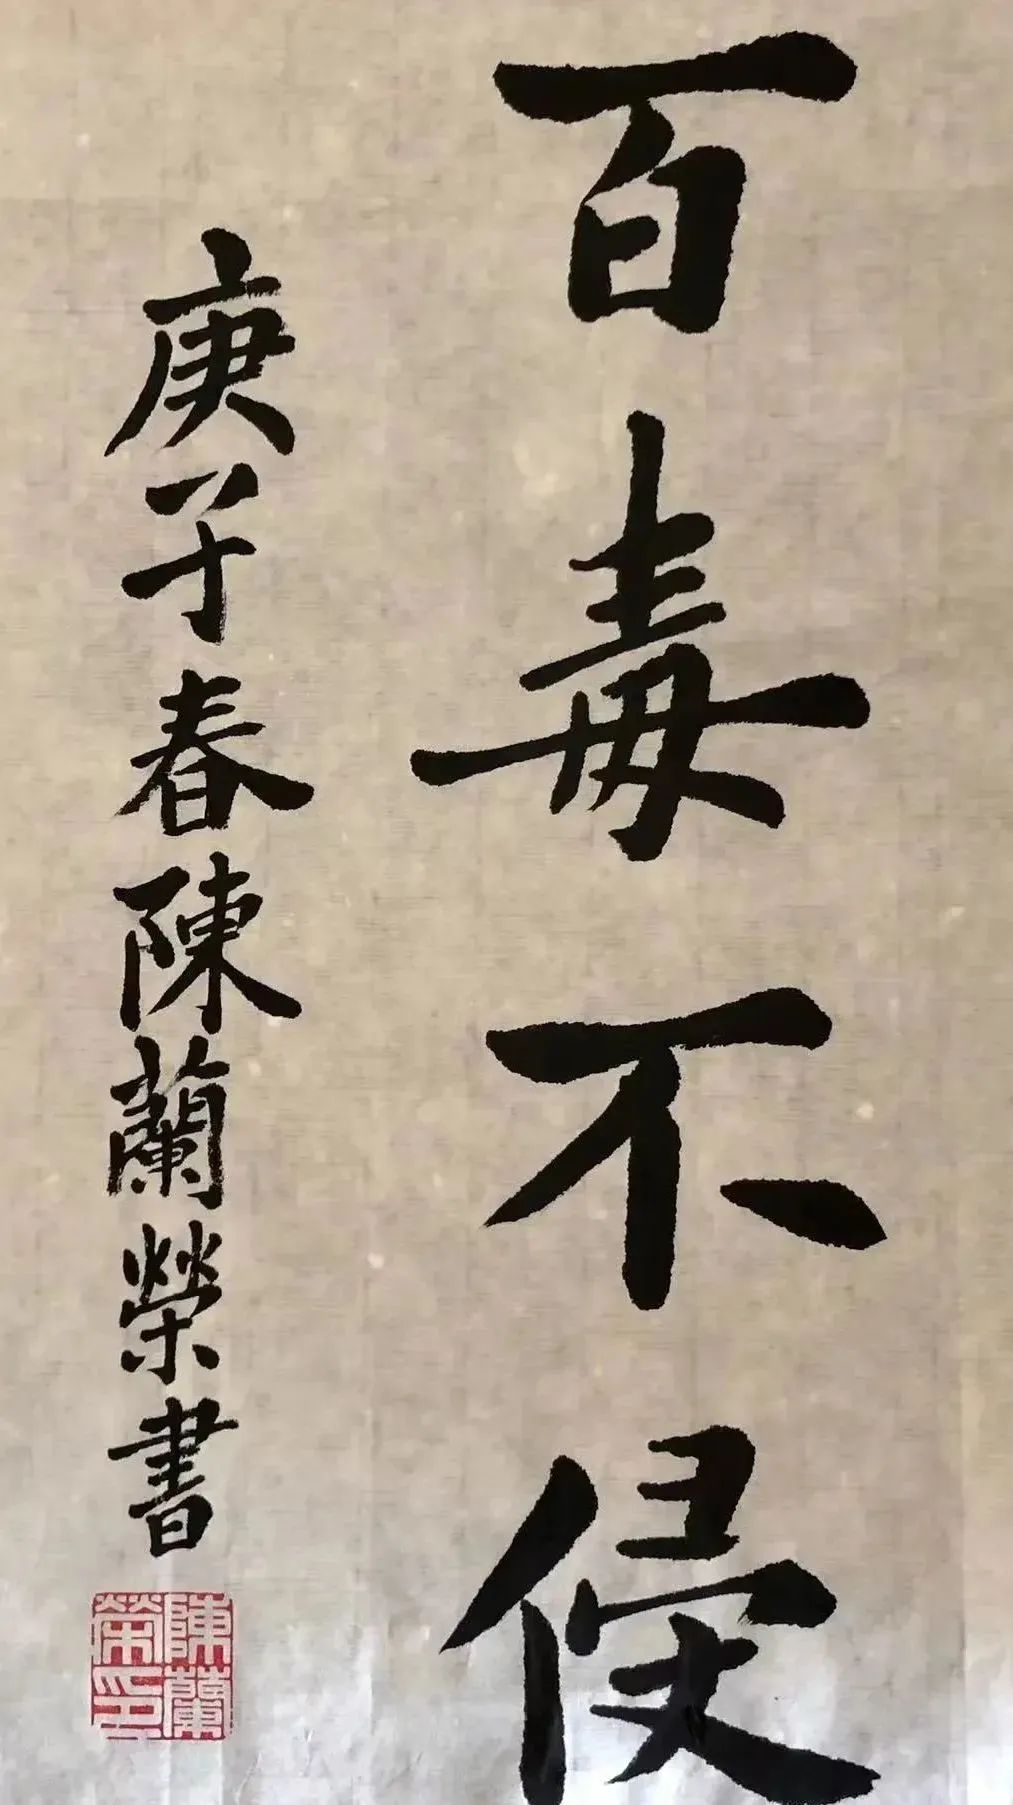 百毒不侵
庚子春陳蘭榮書
陳蘭
榮印